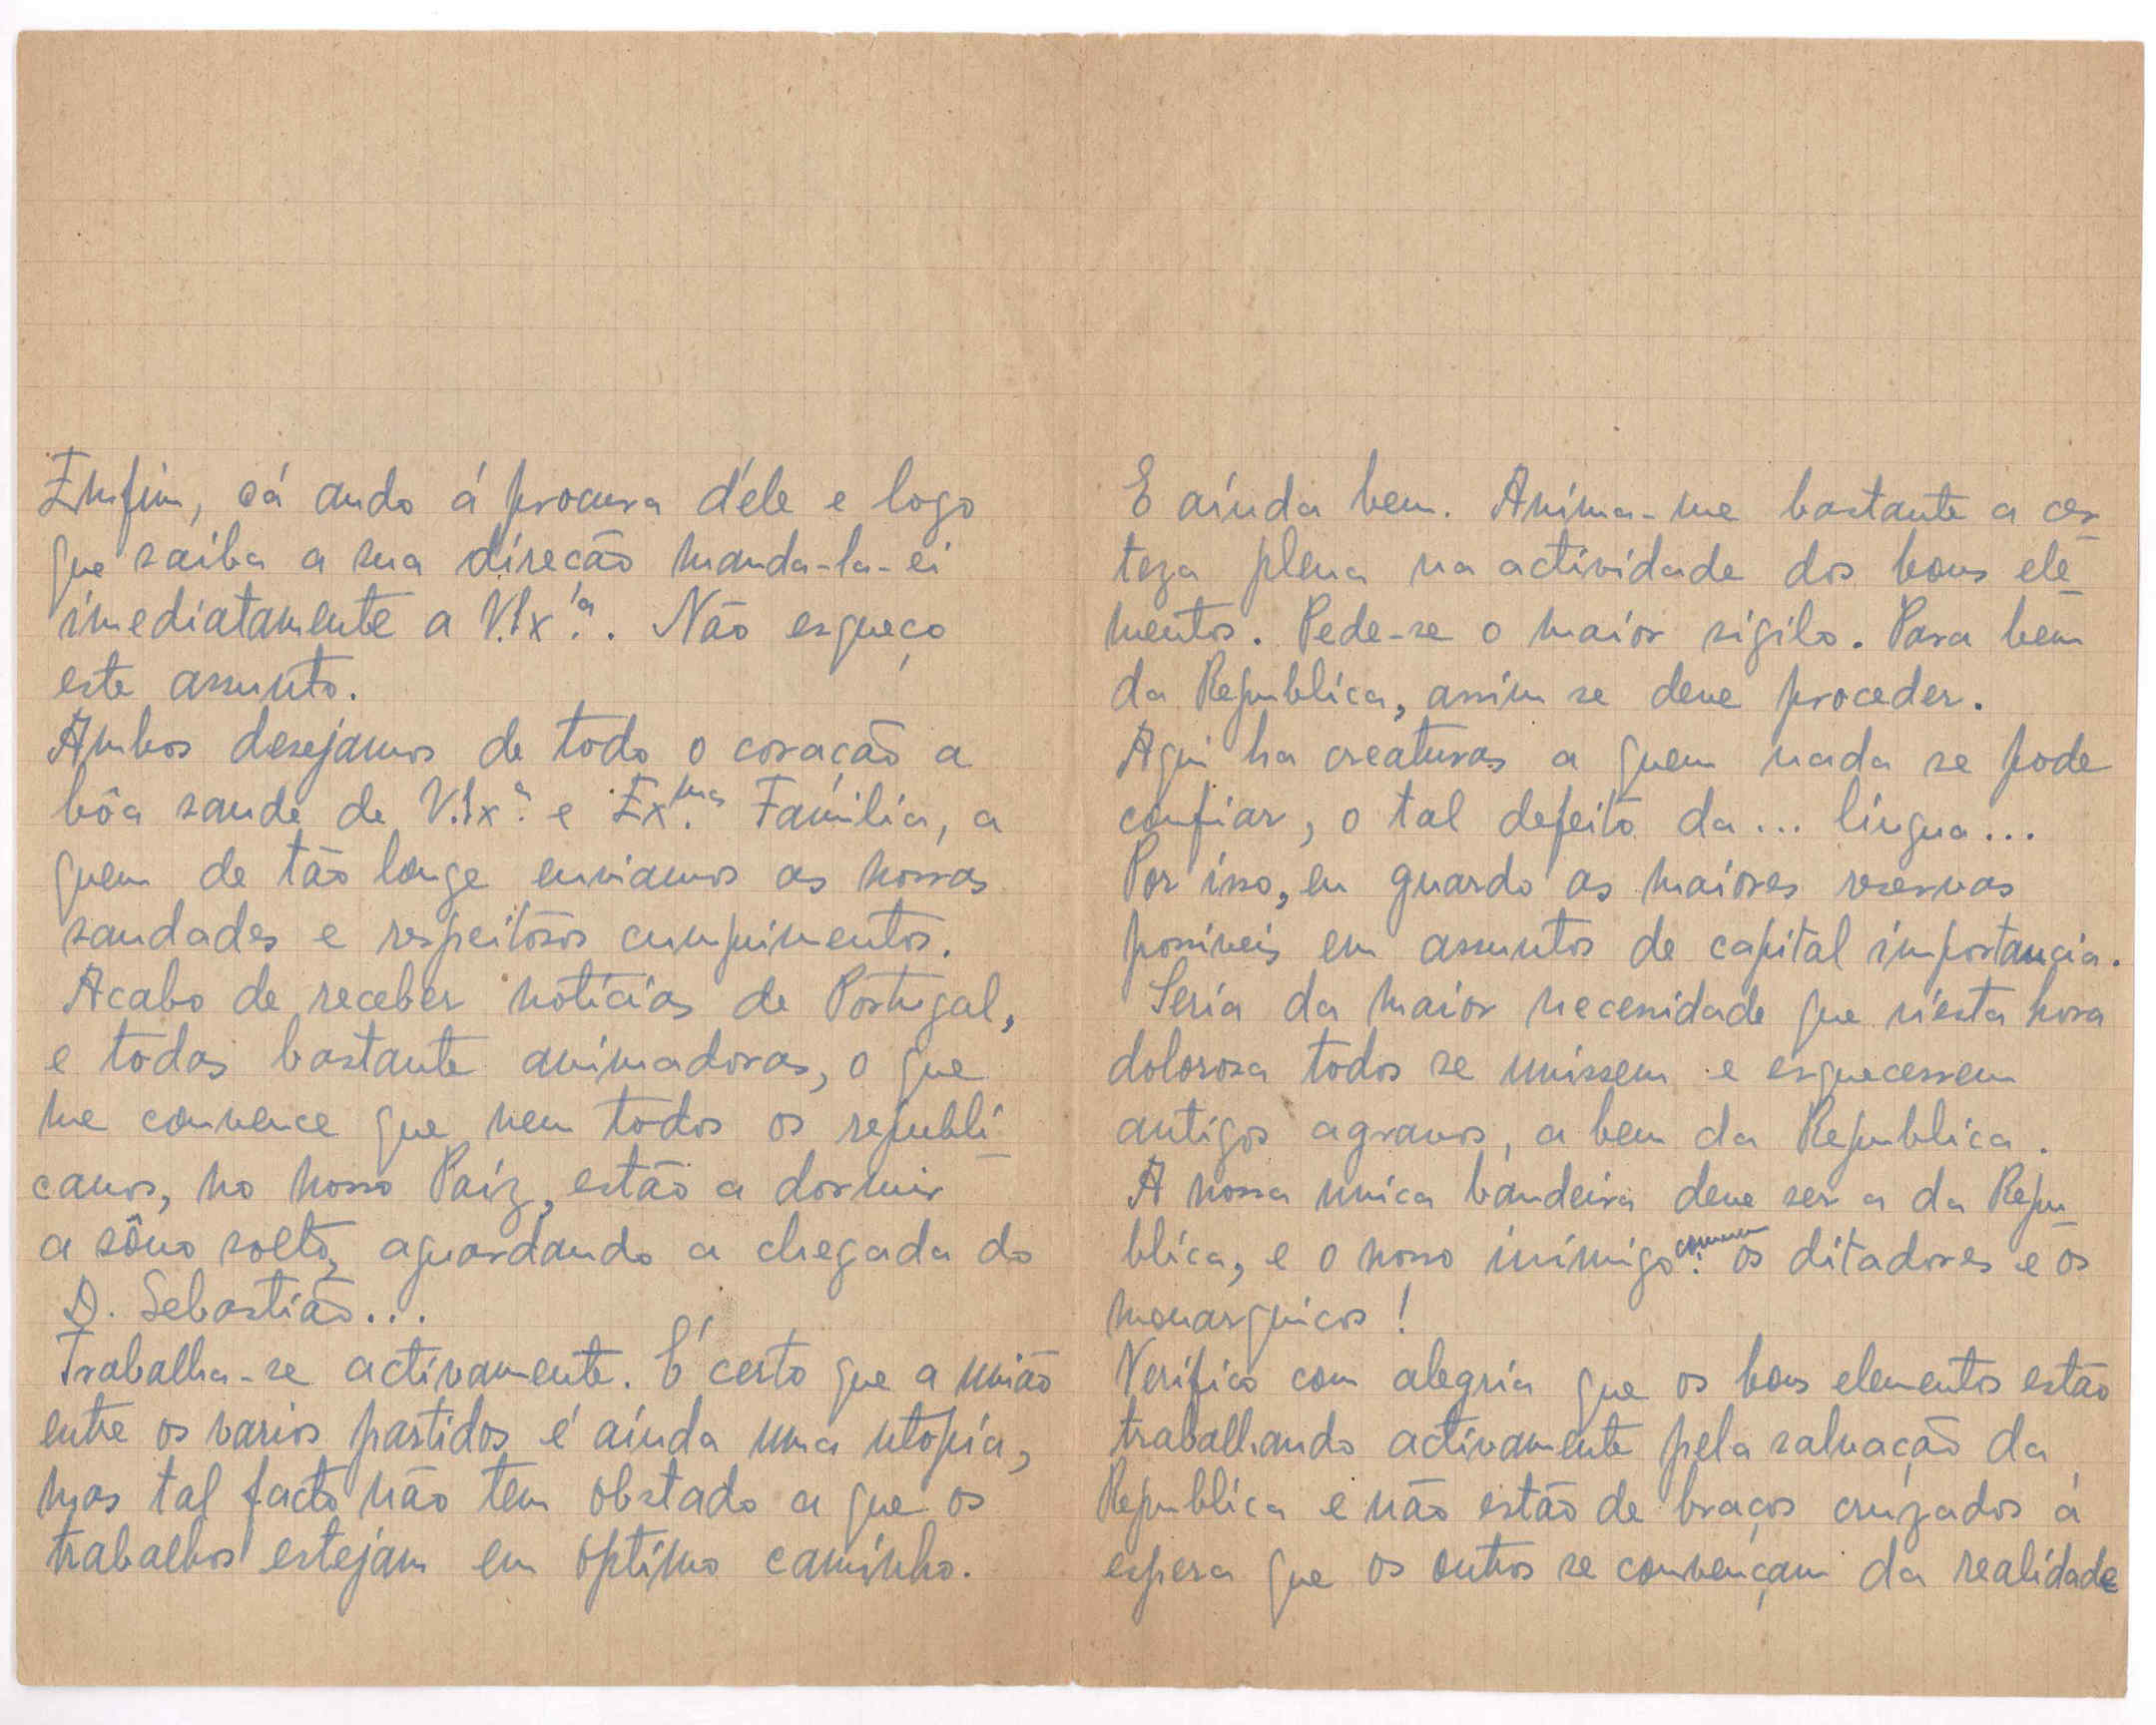 Emfim, cá ando á procura d'ele e logo
que saiba a sua direcão manda-la-ei
imediatamente a V.Ex.ia. Não esqueço
este assunto.
Ambos desejamos de todo o coração a
bôa saude de V.Ex.a e Ex.mas Família, a
quem de tão longe enviamos as nossas
saudades e respeitosos cumprimentos.
Acabo de receber notícias de Portugal,
e todas bastante animadoras, o que
me convence que nem todos os republi-
canos, no nosso Paíz, estão a dormir
a sôno solto, aguardando a chegada do
D. Sebastião...
Trabalha-se activamente. É certo que a união
entre os varios partidos é aínda uma utopía,
mas tal facto não tem obstado a que os
trabalhos estejam em optimo caminho.
E aínda bem. Anima-me bastante a cer-
teza plena na actividade dos bons ele-
mentos. Pede-se o maior sigilo. Para bem
da Republica, assim se deve proceder.
Aqui ha creaturas a quem nada se pode
confiar, o tal defeito da... língua...
Por isso, eu guardo as maiores reservas
possiveis em assuntos de capital importancia.
Seria da maior necessidade que n'esta hora
dolorosa todos se unissem e esquecessem
antigos agravos, a bem da Republica.
A nossa unica bandeira deve ser a da Repu-
blica, e o nosso inimigo comum: os ditadores e os
monarquicos!
Verifico com alegria que os bons elementos estão
trabalhando activamente pela salvação da
Republica e não estão de braços cruzados á
espera que os outros se convençam da realidade